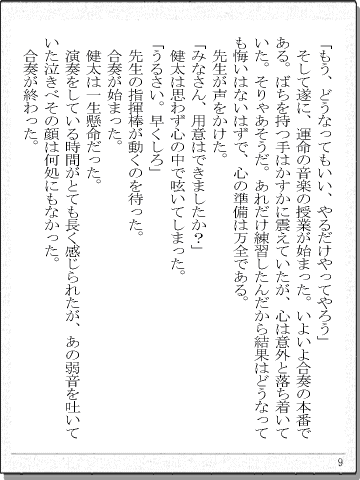 「もう、どうなってもいい、やるだけやってやろう」
そして遂に、運命の音楽の授業が始まった。いよいよ合奏の本番で
ある。ばちを持つ手はかすかに震えていたが、心は意外と落ち着いて
いた。そりゃあそうだ。あれだけ練習したんだから結果はどうなって
も悔いはないはずで、心の準備は万全である。
先生が声をかけた。
「みなさん、用意はできましたか?」
健太は思わず心の中で呟いてしまった。
「うるさい。早くしろ」
先生の指揮棒が動くのを待った。
合奏が始まった。
健太は一生懸命だった。
演奏をしている時間がとても長く感じられたが、あの弱音を吐いて
いた泣きべその顔は何処にもなかった。
合奏が終わった。
9